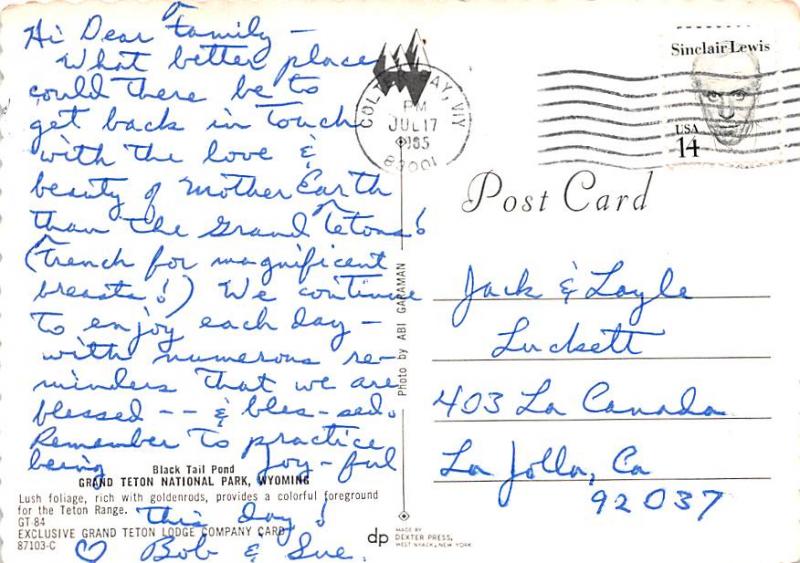 Hi Dear Family -
What better place
could there be to
get back in touch
with the love &
beauty of Mother Earth
than the Grand Tetons!
(French for magnificent
breasts!) We continue
to enjoy each day -
with numerous re-
minders that we are
blessed -- & bles-sed.
Remember to practice
being joy-ful
this day!
♡ Bob & Sue.
Black Tail Pond
GRAND TETON NATIONAL PARK, WYOMING
Lush foliage, rich with goldenrods, provides a colorful foreground
for the Teton Range.
GT-84
EXCLUSIVE GRAND TETON LODGE COMPANY CARD
87103-C
Photo by ABI GARAMAN
dp
MADE BY
DEXTER PRESS,
WEST NYACK, NEW YORK
COLTER BAY, WY
PM
JUL 17
1985
83001
Sinclair Lewis
USA
14
Post Card
Jack & Layle
Luckett
403 La Canada
La Jolla, Ca
92037